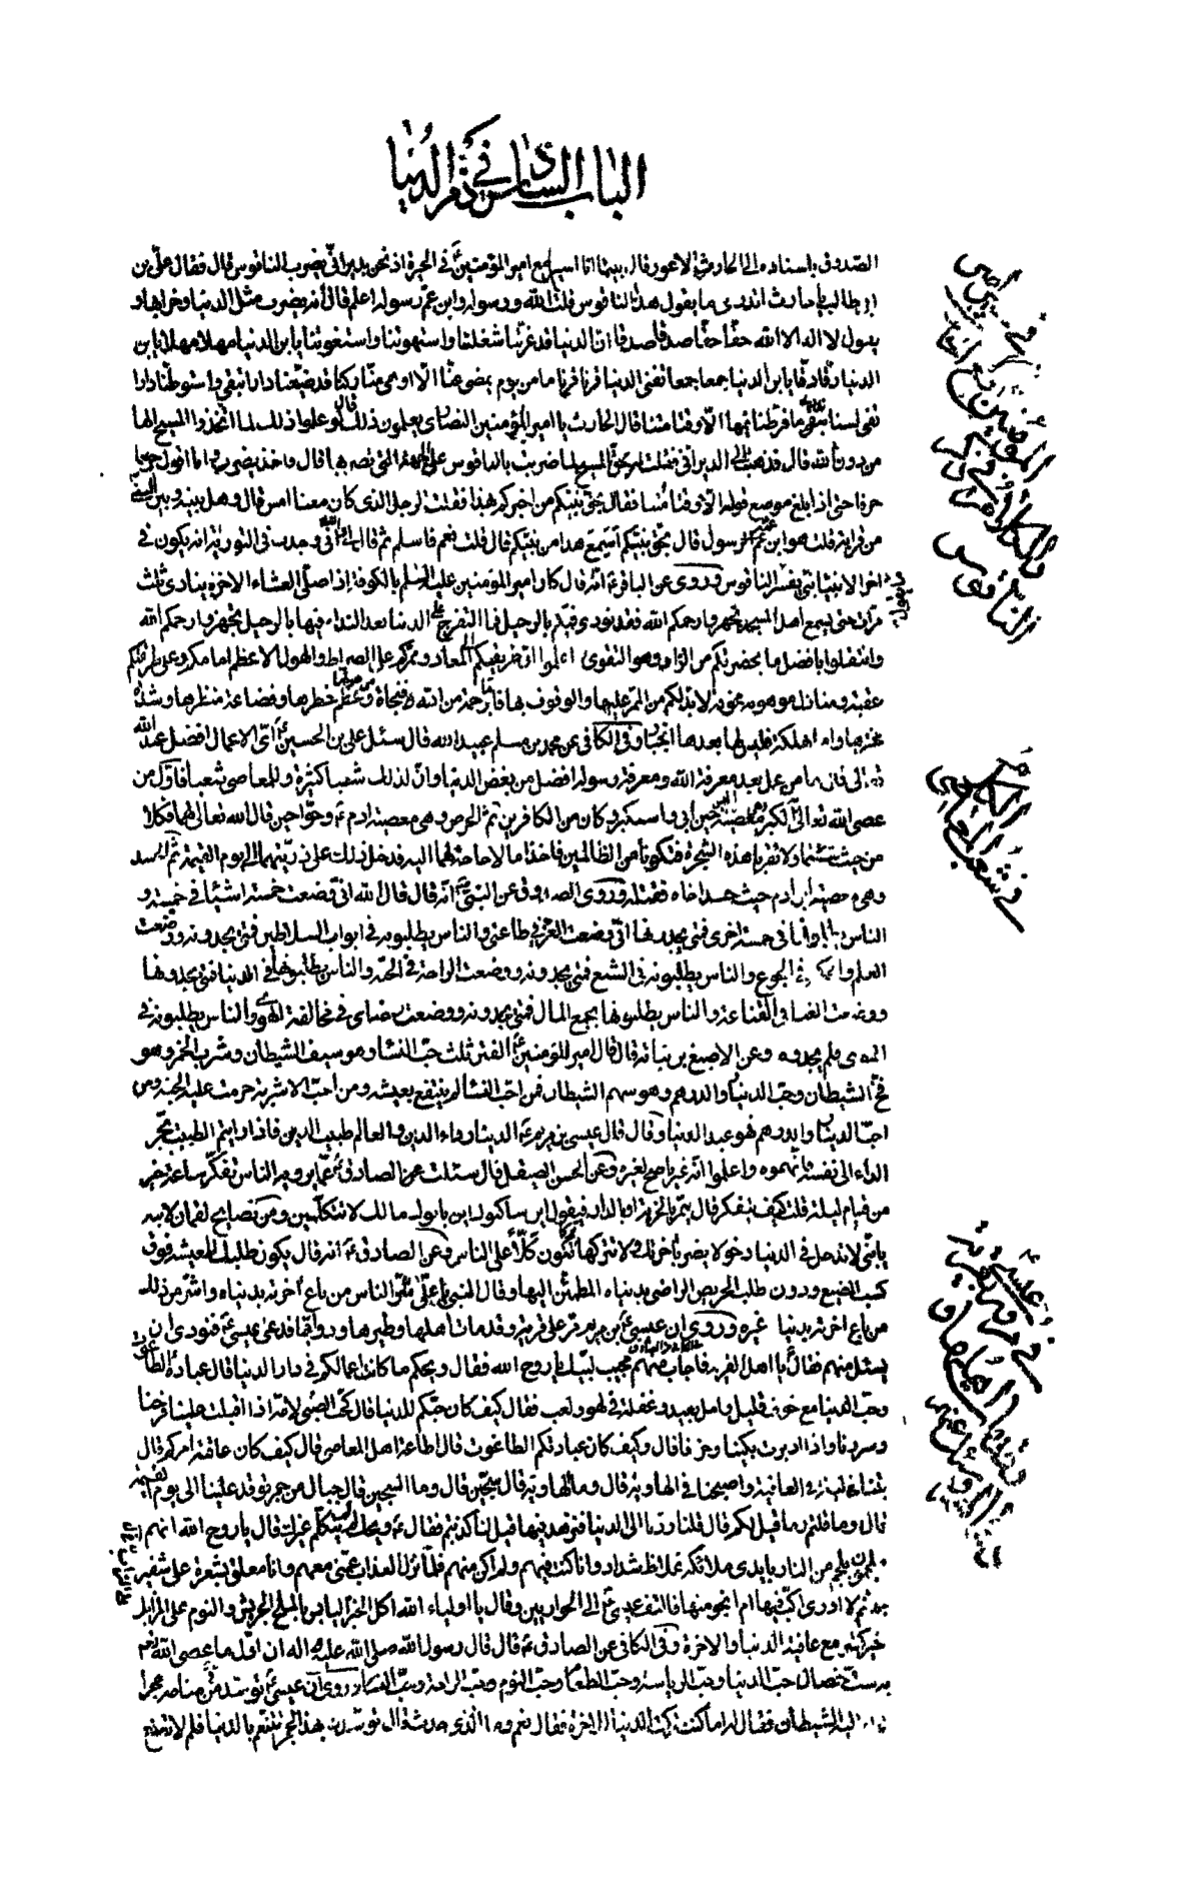 الباب السادس في ذم الدنيا
الصدوق باسناده الى الحارث الاعور قال بينا انا اسير مع امير المؤمنين ع في الحيرة اذ نحن بديراني يضرب الناقوس قال فقال علي بن
ابي طالب يا حارث اتدري ما يقول هذا الناقوس قلت الله ورسوله وابن عم رسوله اعلم قال انه يضرب مثل الدنيا وخرابها و
يقول لا اله الا الله حقا حقا صدقا صدقا ان الدنيا قد غرتنا وشغلتنا واستهوتنا واستغوتنا يا بن الدنيا مهلا مهلا يا بن
الدنيا دقا دقا يا بن الدنيا جمعا جمعا تفنى الدنيا قرنا قرنا ما من يوم يمضي عنا الا اوهى منا ركنا قد ضيعنا دارا تبقى واستوطنا دارا
تفنى لسنا ندري ما فرطنا فيها الا لو قد متنا قال الحارث يا امير المؤمنين النصارى يعلمون ذلك قال لو علموا ذلك لما اتخذوا المسيح الها
من دون الله قال فذهبت الى الديراني فقلت له بحق المسيح لما ضربت بالناقوس على الجهة التي تضربها قال فاخذ يضرب وانا اقول حرفا
حرفا حتى اذا بلغ موضع قوله الا لو قد متنا فقال بحق نبيكم من اخبركم هذا فقلت الرجل الذي كان معنا امس قال وهل بينه وبين النبي
من قرابة قلت هو ابن عم الرسول قال بحق نبيكم اسمع هذا من نبيكم قال قلت نعم فاسلم ثم قال لي والله اني وجدت في التورية انه يكون في
اخر الانبياء نبي يفسر الناقوس وروي عن الباقر ع انه قال كان امير المؤمنين عليه السلم بالكوفة اذا صلى العشاء الاخرة ينادي ثلث
مرات حتى يسمع اهل المسجد تجهزوا رحمكم الله فقد نودي فيكم بالرحيل فما التعرج على الدنيا بعد النداء فيها بالرحيل تجهزوا رحمكم الله
وانتقلوا بافضل ما بحضرتكم من الزاد وهو التقوى اعلموا ان طريقكم الى المعاد وممركم على الصراط والهول الاعظم امامكم وعلى طريقكم
عقبة ومنازل مهولة مخوفة لا بد لكم من الممر عليها والوقوف بها فاما برحمة من الله فنجاة من هولها وعظم خطرها وفظاعة منظرها وشدة
مختبرها واما بهلكة فليس لها بعدها انجبار وفي الكافي عن محمد بن مسلم عبيد الله قال سئل علي بن الحسين ع اي الاعمال افضل عند الله
قال ما من عمل بعد معرفة الله ومعرفة رسوله افضل من بغض الدنيا وان لذلك شعبا كثيرة وللمعاصي شعبا فاول من
عصى الله تعالى الكبر وهي معصية ابليس حين ابى واستكبر وكان من الكافرين ثم الحرص وهي معصية ادم ع وحوا حين قال الله تعالى لهما فكلا
من حيث شئتما ولا تقربا هذه الشجرة فتكونا من الظالمين فاخذا ما لا حاجة لهما اليه فدخل ذلك على ذريتهما الى يوم القيمة ثم الحسد
وهي معصية ابن ادم حيث حسد اخاه فقتله وروى الصدوق عن النبي ص انه قال قال الله اني وضعت خمسة اشيا في خمسة و
الناس يطلبونها في خمسة اخرى فمتى يجدونها اني وضعت العز في طاعتي والناس يطلبونه في ابواب السلاطين فمتى يجدونه ووضعت
العلم والحكمة في الجوع والناس يطلبونه في الشبع فمتى يجدونه ووضعت الراحة في الجنة والناس يطلبونها في الدنيا فمتى يجدونها
ووضعت الغنا في القناعة والناس يطلبونها بجمع المال فمتى يجدونه ووضعت رضاى في مخالفة الهوى والناس يطلبونه في
الهوى فلم يجدوه وعن الاصبغ بن نباتة قال قال امير المؤمنين ع الفتن ثلث حب النسا وهو سيف الشيطان وشرب الخمر وهو
فخ الشيطان وحب الدينار والدرهم وهو سهم الشيطان فمن احب النسا لم ينتفع بعيشه ومن احب الاشربة حرمت عليه الجنة ومن
احب الدينار والدرهم فهو عبد الدنيا وقال قال عيسى بن مريم ع الدينار داء الدين والعالم طبيب الدين فاذا رايتم الطبيب يجر
الداء الى نفسه فاتهموه واعلموا انه غير ناصح لغيره وعن الحسن الصيقل قال سئلت عن الصادق ع عما يرويه الناس تفكر ساعة خير
من قيام ليلة قلت كيف يتفكر قال يمر بالخربة او بالدار فيقول اين ساكنوك اين بانوك ما لك لا تتكلمين ومن نصايح لقمان لابنه
يا بني لا تدخل في الدنيا دخولا يضر باخرتك ولا تتركها فتكون كلا على الناس وعن الصادق ع انه قال يكون طلبك للمعيشة فوق
كسب المضيع ودون طلب الحريص الراضي بدنياه المطمئن اليها وقال النبي ص يا علي شر الناس من باع اخرته بدنياه واشر من ذلك
من باع اخرته بدنيا غيره وروي ان عيسى ع بن مريم مر على قرية وقد مات اهلها وطيرها ودوابها فدعى عيسى ع فنودي ان
يسئل منهم فقال ع يا اهل القرية فاجابه منهم مجيب لبيك يا روح الله فقال ويحكم ما كانت اعمالكم في دار الدنيا قال عبادة الطاغوت
وحب الدنيا مع خوف قليل وامل بعيد وغفلة في لهو ولعب فقال كيف كان حبكم للدنيا قال كحب الصبي لامه اذا اقبلت علينا فرحنا
وسررنا واذا ادبرت بكينا وحزنا قال وكيف كان عبادتكم الطاغوت قال اطاعة اهل المعاصي قال كيف كان عاقبة امركم قال
بتنا ليلة في العافية واصبحنا في الهاوية قال وما الهاوية قال سجين قال وما السجين قال جبال من جمر توقد علينا الى يوم القيمة
قال وما قلتم وما قيل لكم قال قلنا ردنا الى الدنيا فنزهد فيها قيل لنا كذبتم فقال ع ويحك لم لم يتكلم غيرك قال يا روح الله انهم
ملجمون بلجم من النار بايدي ملائكة غلاظ شداد وانا كنت فيهم ولم اكن منهم فلما نزل العذاب عمني معهم وانا معلق بشعرة على شفير
جهنم لا ادري اكب فيها ام انجو منها فالتفت عيسى ع الى الحواريين وقال يا اولياء الله اكل الخبز اليابس بالملح الجريش والنوم على المزابل
خير كثير مع عافية الدنيا والاخرة وفي الكافي عن الصادق ع قال قال رسول الله صلى الله عليه واله ان اول ما عصي الله به
ست خصال حب الدنيا وحب الرياسة وحب الطعام وحب النوم وحب الراحة وحب النساء وروي ان عيسى ع توسد مرة من منامه حجرا
اليه الشيطان فقال له اما كنت تركت الدنيا للاخرة فقال نعم وما الذي حدث قال توسدك بهذا الحجر تتنعم بالدنيا فلم لا تضع
المؤمنين
والكلام
الناقوس
في شعب المعاصي
في مرور عيسى